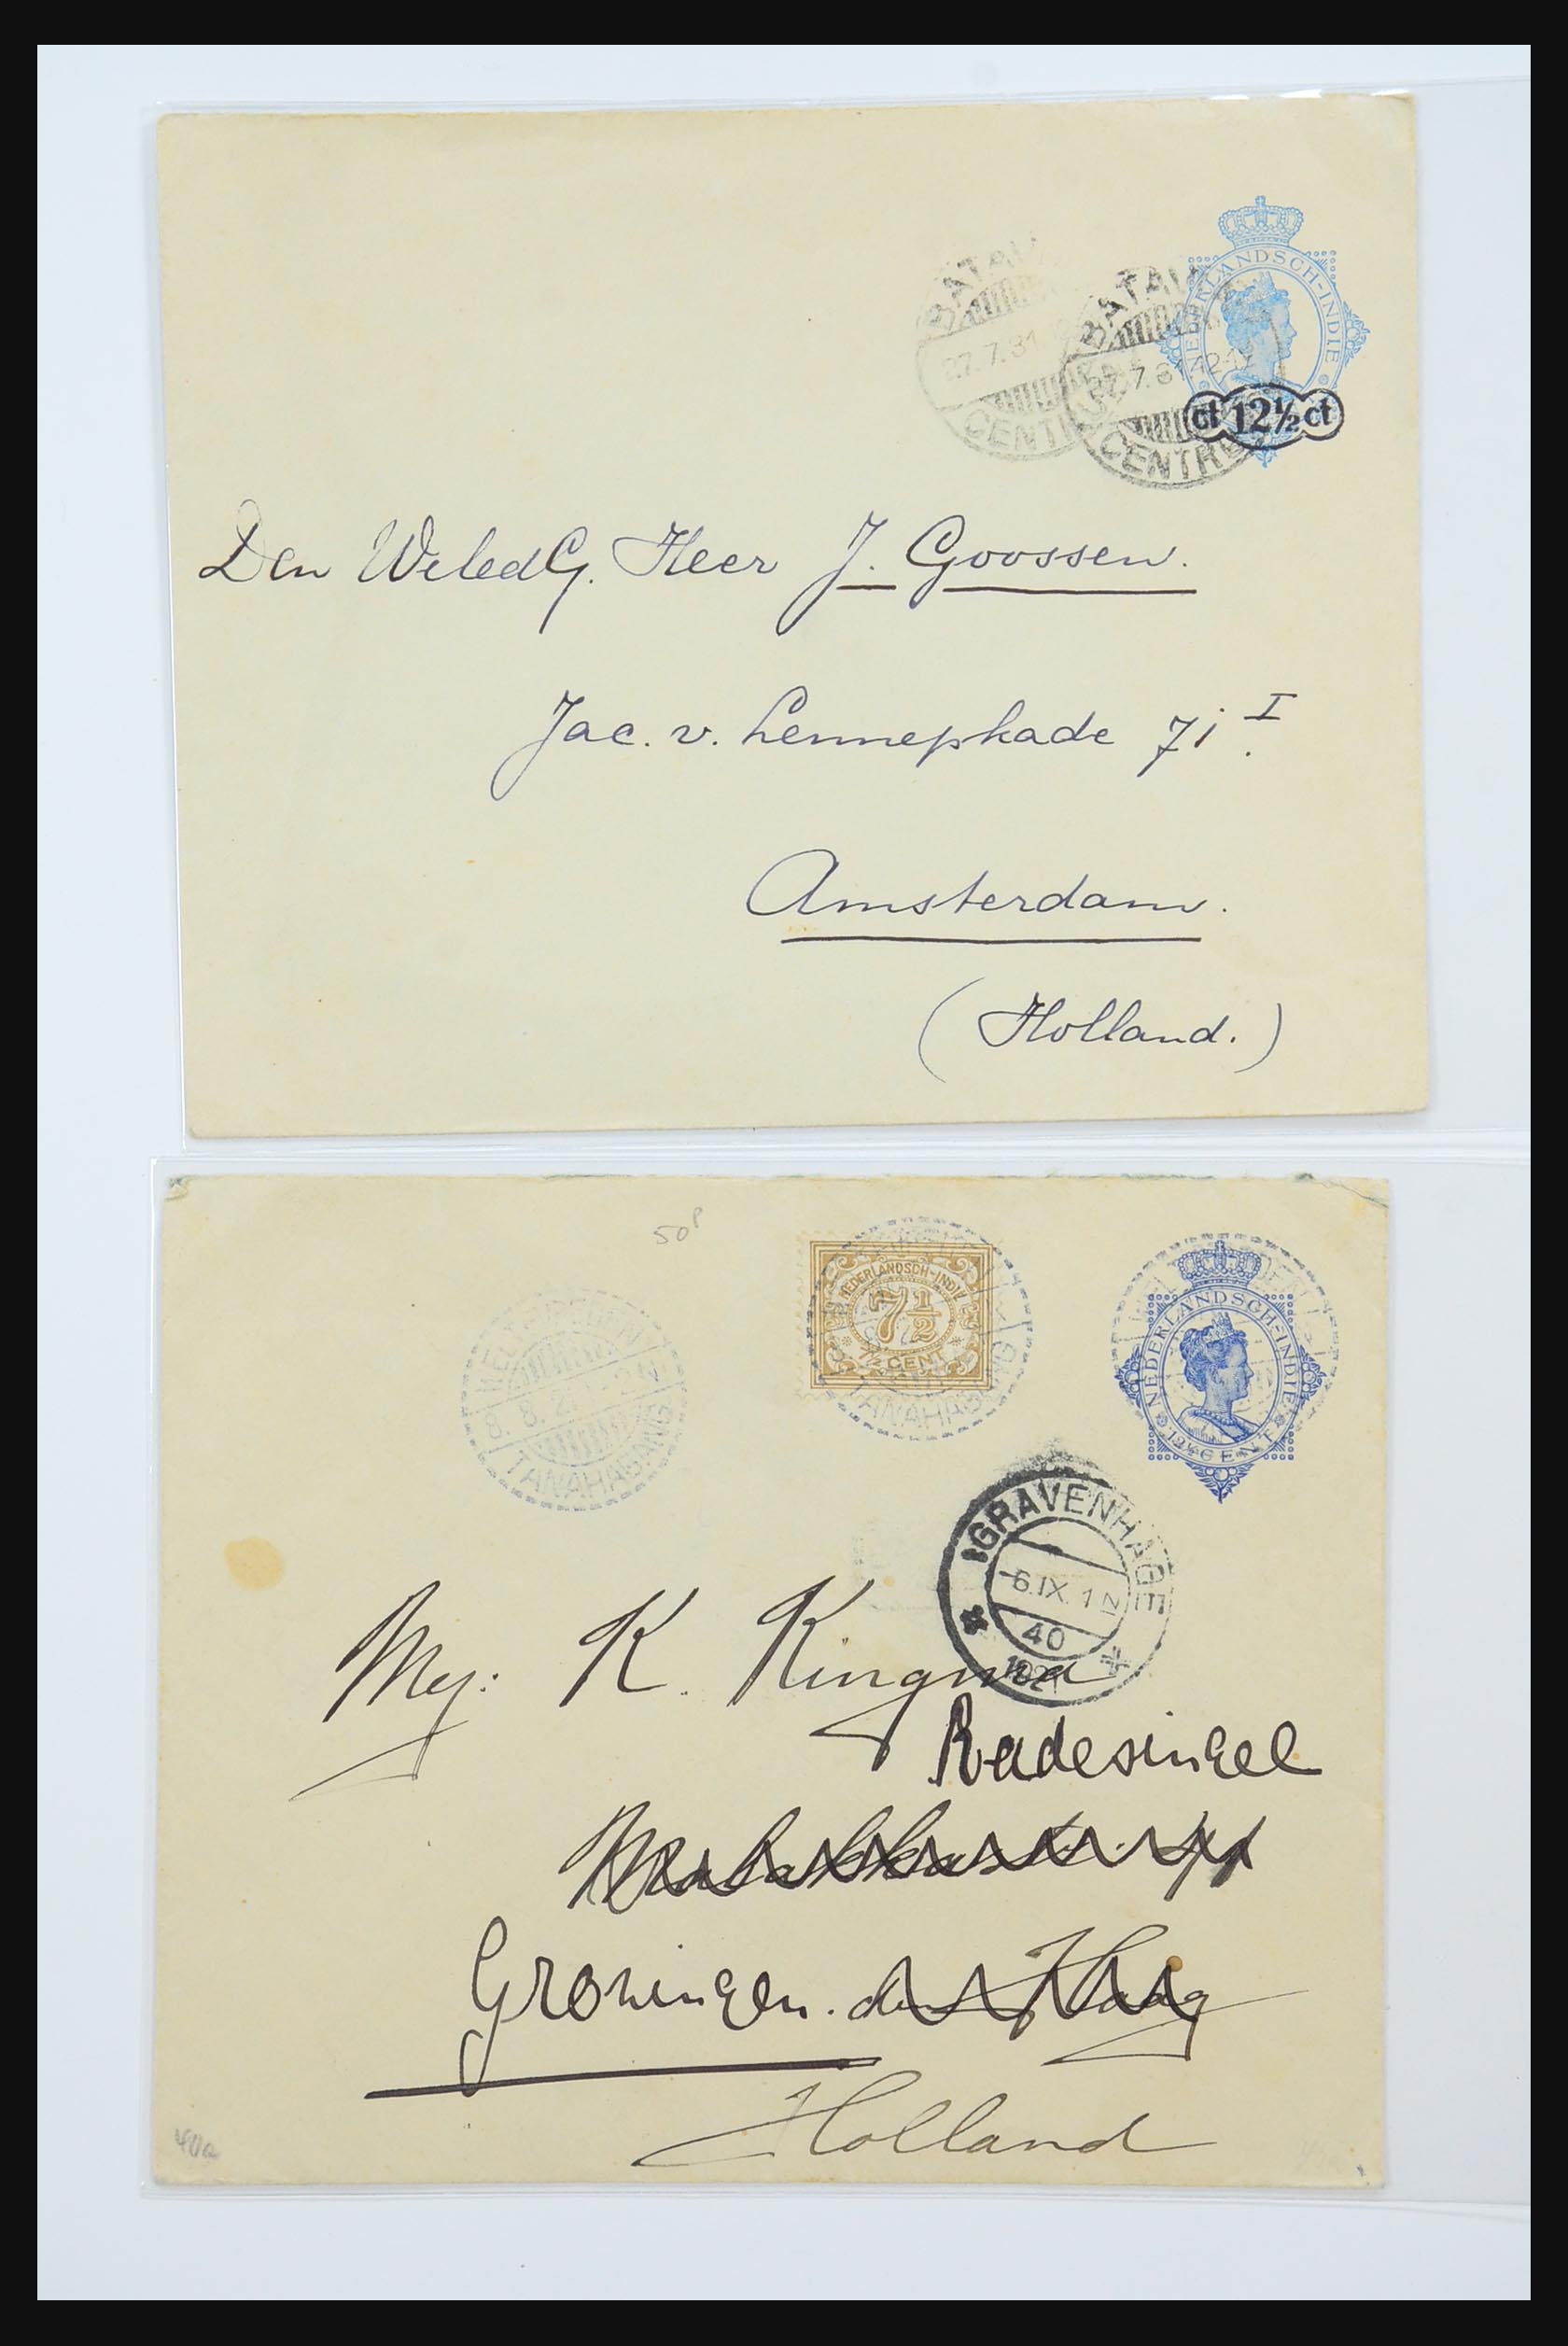 NEDERLANDSCH-INDIE
BATAV
27.7.31
CENTRUM
BATAVIA
27.7.31.12-1
CENTRUM
ct 12½ ct
Den WeledG. Heer J. Goossen.
Jac. v. Lennepkade 71 I.
Amsterdam.
(Holland.)
50P
NEDERLANDSCH-INDIE
7½
7½ CENT
TANAHABANG
WELTEVREDEN
8.8.21
TANAHABANG
NEDERLANDSCH-INDIE
12½ CENT
'SGRAVENHAGE
-6.IX. 1 N
40
1921
Mej: K. Kingma
Radesingel
Groningen. den Haag
Holland
40a